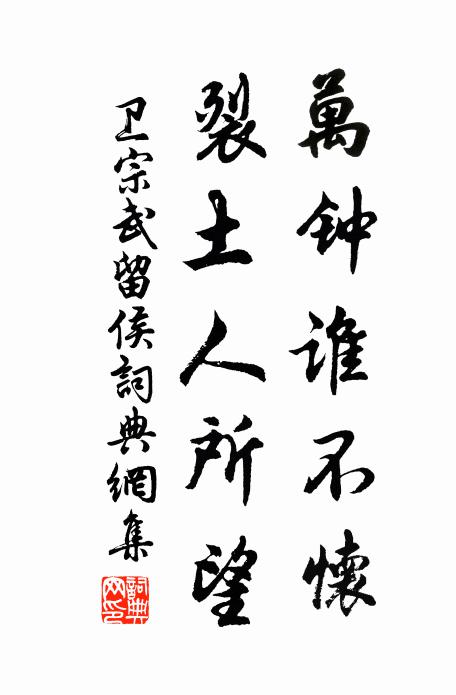 萬钟谁不懷
裂土人所望
卫宗武留侯詞典網集
詞典网印